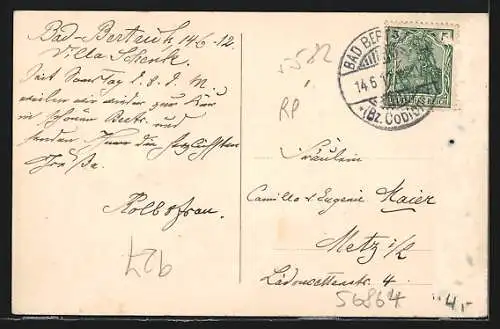 Bad-Bertrich, 14·6·12.
Villa Schenk.
Seit Sonntag d. 8. d. M
weilen wir wieder zur Kur
in schönen Bertr. und
senden Ihnen die herzlichsten
Grüße.
Kolb & Frau.
927
582
RP
BAD BER
14.6.1
*(Bz. COBL
5
DEUTSCHES REICH
Fräulein
Camilla & Eugenie Maier
Metz i/L
4.
56864
"4,-